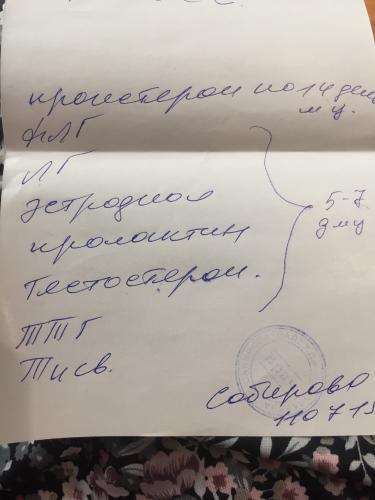 прогестерон на 14 день
м ц.
ФЛГ
ЛГ
эстродиол
пролактин
Тестостерон.
5-7
дмц
ТТГ
Т4 св.
Сабирова